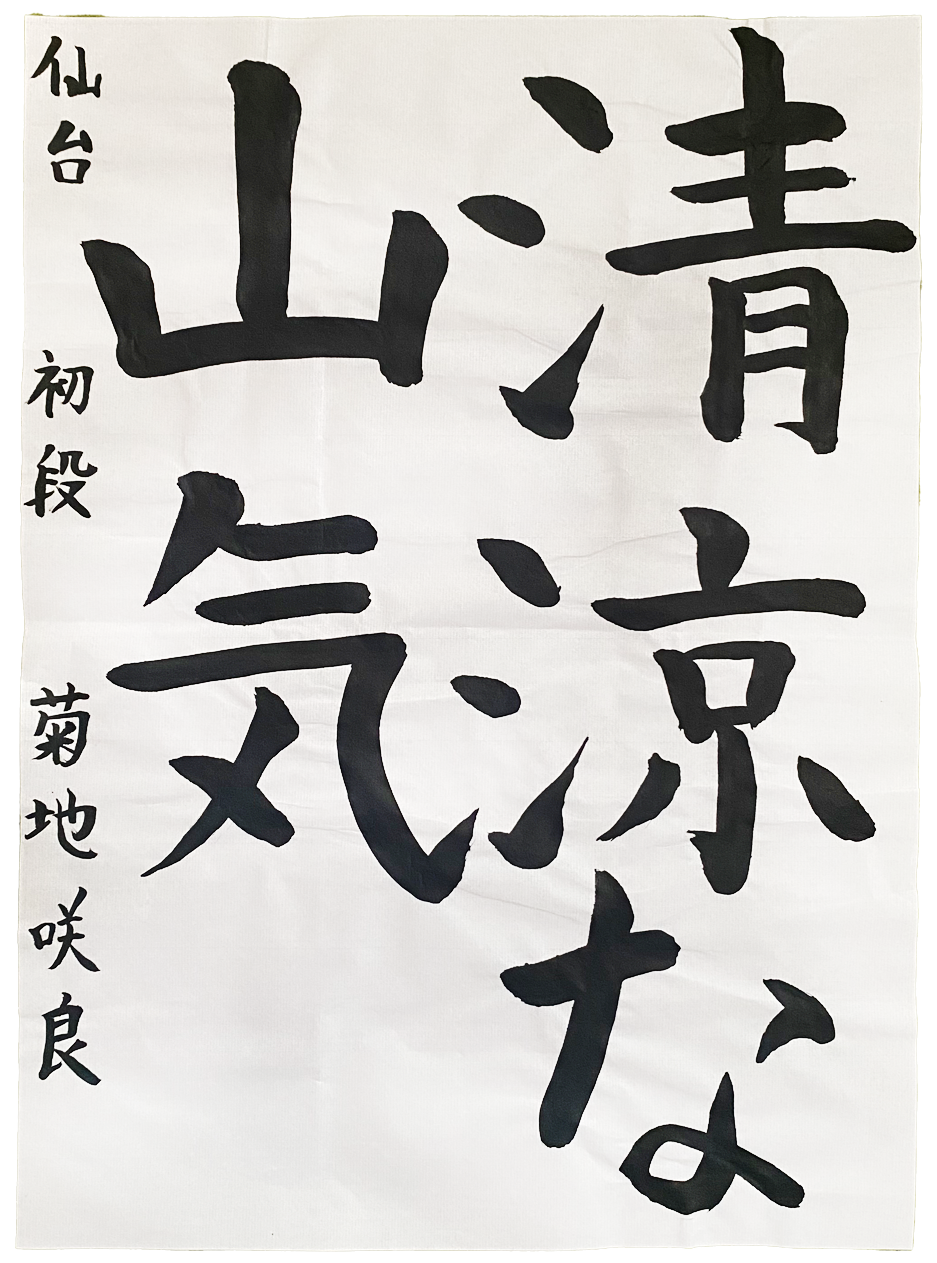 清涼な
山気
仙台 初段 菊地咲良